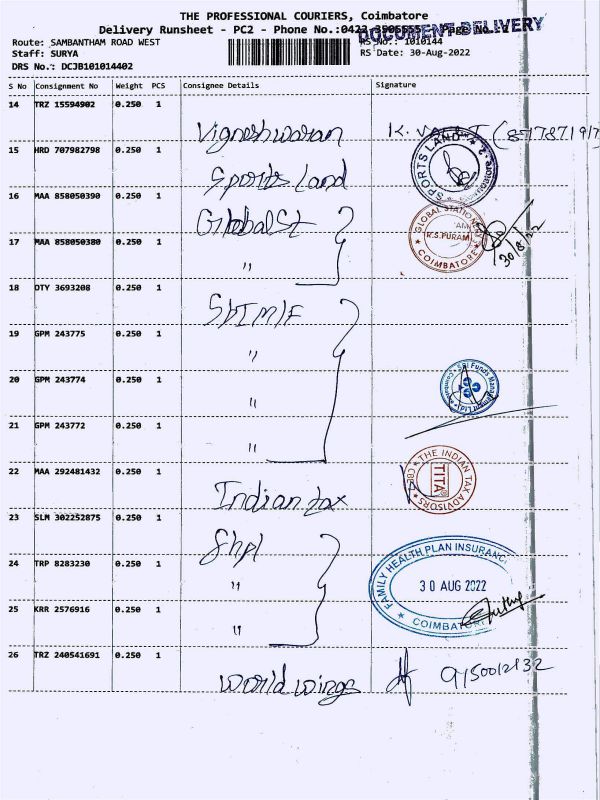 THE PROFESSIONAL COURIERS, Coimbatore
Delivery Runsheet - PC2 - Phone No.:0422
DOCUMENT DELIVERY
Route: SAMBANTHAM ROAD WEST
RS No.: 1010144
Staff: SURYA
RS Date: 30-Aug-2022
DRS No.: DCJB101014402
S No Consignment No Weight PCS Consignee Details Signature
14 TRZ 15594902 0.250 1
Vigneshwaran
15 HRD 707982798 0.250 1
Sports Land
SPORTS LAND
16 MAA 858050390 0.250 1
Global St
GLOBAL STATIONERY
R.S.PURAM
COIMBATORE
30/8/22
17 MAA 858050380 0.250 1
"
18 DTY 3693208 0.250 1
SBI M/F
19 GPM 243775 0.250 1
"
20 GPM 243774 0.250 1
"
SBI Funds
21 GPM 243772 0.250 1
"
22 MAA 292481432 0.250 1
Indian tax
THE INDIAN TAX ADVISORS
TITA
CBE
23 SLM 302252875 0.250 1
fhpl
24 TRP 8283230 0.250 1
"
FAMILY HEALTH PLAN INSURANC
30 AUG 2022
COIMBATORE
25 KRR 2576916 0.250 1
"
26 TRZ 240541691 0.250 1
World wings